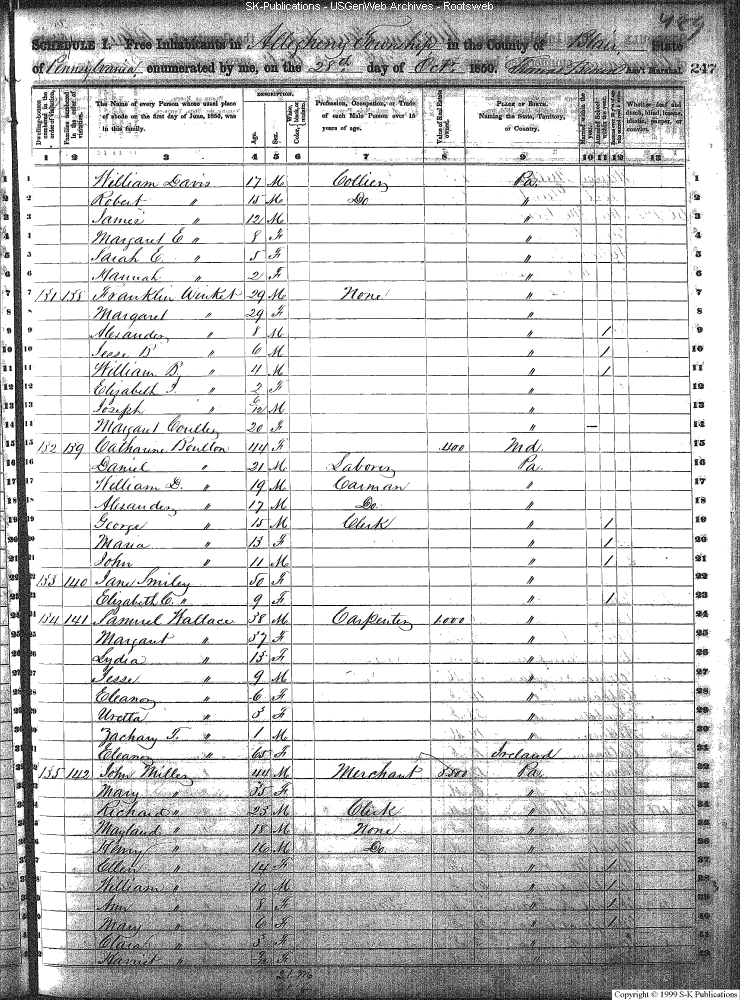 SK-Publications - USGenWeb Archives - Rootsweb
489
SCHEDULE I. Free Inhabitants in Allegheny Township in the County of Blair State
of Pennsylvania, enumerated by me, on the 28th day of Oct. 1850. Ass't Marshal. 247
Dwelling-houses numbered in the order of visitation.
Families numbered in the order of visitation.
The Name of every Person whose usual place of abode on the first day of June, 1850, was in this family.
DESCRIPTION.
Age.
Sex.
White, black, or mulatto.
Color
Profession, Occupation, or Trade of each Male Person over 15 years of age.
Value of Real Estate owned.
PLACE OF BIRTH. Naming the State, Territory, or Country.
Married within the year.
Attended School within the year.
Whether deaf and dumb, blind, insane, idiotic, pauper, or convict.
1 2 3 4 5 6 7 8 9 10 11 12 13
1 William Davis 17 M Collier Pa. 1
2 Robert " 15 M Do " 2
3 James " 12 M " 3
4 Margaret E " 8 F " 4
5 Sarah E. " 5 F " 5
6 Hannah " 2 F " 6
7 131 138 Franklin 29 M None " 7
8 Margaret " 29 F " 8
9 Alexander " 8 M " / 9
10 Jesse B " 6 M " / 10
11 William B. " 4 M " / 11
12 Elizabeth J. " 2 F " 12
13 Joseph " 6/12 M " 13
14 Margaret 20 F " 14
15 132 139 Catharine Boulton 44 F 400 Md. 15
16 Daniel " 21 M Laborer Pa. 16
17 William D. " 19 M Carman " 17
18 Alexander " 17 M Do " 18
19 George " 15 M Clerk " / 19
20 Maria " 13 F " / 20
21 John " 11 M " / 21
22 133 140 Jane Smiley 50 F " 22
23 Elizabeth C. " 9 F " / 23
24 134 141 Samuel Wallace 38 M Carpenter 1.000 " 24
25 Margaret " 37 F " 25
26 Lydia " 13 F " 26
27 Jesse " 9 M " 27
28 Eleanor " 6 F " 28
29 Uretta " 3 F " 29
30 Zachary T. " 1 M " 30
31 Eleanor " 65 F Ireland 31
32 135 142 John Miller 44 M Merchant 8500 Pa. 32
33 Mary " 35 F " 33
34 Richard " 23 M Clerk " 34
35 Mayland " 18 M None " 35
36 Henry " 16 M Do " 36
37 Ellen " 14 F " / 37
38 William " 10 M " / 38
39 Ann " 8 F " / 39
40 Mary " 6 F " / 40
41 Clara " 3 F " 41
42 Harriet " F " 42
21 M
Copyright © 1999 S-K Publications